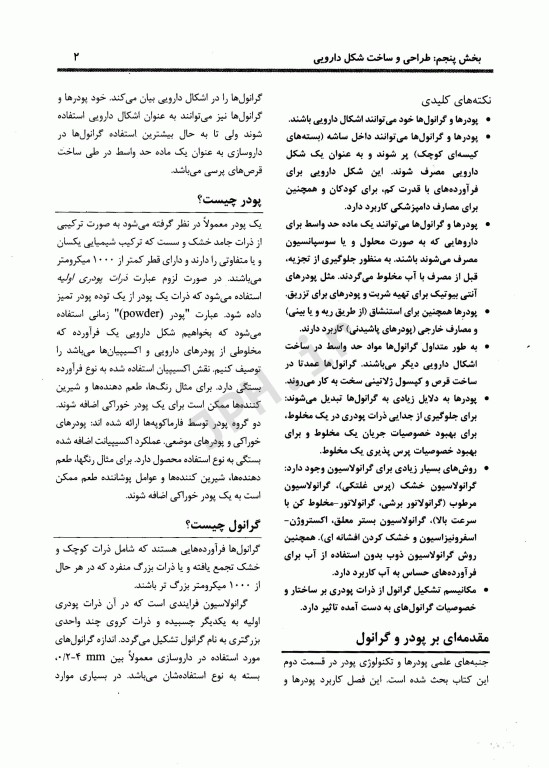 بخش پنجم: طراحی و ساخت شکل دارویی
۲
نکته‌های کلیدی
• پودرها و گرانول‌ها خود می‌توانند اشکال دارویی باشند.
• پودرها و گرانول‌ها می‌توانند داخل ساشه (بسته‌های
کیسه‌ای کوچک) پر شوند و به عنوان یک شکل
دارویی مصرف شوند. این شکل دارویی برای
فرآورده‌های با قدرت کم، برای کودکان و همچنین
برای مصارف دامپزشکی کاربرد دارد.
• پودرها و گرانول‌ها می‌توانند یک ماده حد واسط برای
داروهایی که به صورت محلول و یا سوسپانسیون
مصرف می‌شوند باشند. به منظور جلوگیری از تجزیه،
قبل از مصرف با آب مخلوط می‌گردند. مثل پودرهای
آنتی بیوتیک برای تهیه شربت و پودرهای برای تزریق.
• پودرها همچنین برای استنشاق (از طریق ریه و یا بینی)
و مصارف خارجی (پودرهای پاشیدنی) کاربرد دارند.
• به طور متداول گرانول‌ها مواد حد واسط در ساخت
اشکال دارویی دیگر می‌باشند. گرانول‌ها عمدتا در
ساخت قرص و کپسول ژلاتینی سخت به کار می‌روند.
• پودرها به دلایل زیادی به گرانول‌ها تبدیل می‌شوند:
برای جلوگیری از جدایی ذرات پودری در یک مخلوط،
برای بهبود خصوصیات جریان یک مخلوط و برای
بهبود خصوصیات پرس پذیری یک مخلوط.
• روش‌های بسیار زیادی برای گرانولاسیون وجود دارد:
گرانولاسیون خشک (پرس غلتکی)، گرانولاسیون
مرطوب (گرانولاتور برشی، گرانولاتور-مخلوط کن با
سرعت بالا)، گرانولاسیون بستر معلق، اکستروژن-
اسفرونیزاسیون و خشک کردن افشانه ای). همچنین
روش گرانولاسیون ذوب بدون استفاده از آب برای
فرآورده‌های حساس به آب کاربرد دارد.
• مکانیسم تشکیل گرانول از ذرات پودری بر ساختار و
خصوصیات گرانول‌های به دست آمده تاثیر دارد.
مقدمه‌ای بر پودر و گرانول
جنبه‌های علمی پودرها و تکنولوژی پودر در قسمت دوم
این کتاب بحث شده است. این فصل کاربرد پودرها و
گرانول‌ها را در اشکال دارویی بیان می‌کند. خود پودرها و
گرانول‌ها نیز می‌توانند به عنوان اشکال دارویی استفاده
شوند ولی تا به حال بیشترین استفاده گرانول‌ها در
داروسازی به عنوان یک ماده حد واسط در طی ساخت
قرص‌های پرسی می‌باشد.
پودر چیست؟
یک پودر معمولاً در نظر گرفته می‌شود به صورت ترکیبی
از ذرات جامد خشک و سست که ترکیب شیمیایی یکسان
و یا متفاوتی را دارند و دارای قطر کمتر از ۱۰۰۰ میکرومتر
می‌باشند. در صورت لزوم عبارت ذرات پودری اولیه
استفاده می‌شود که ذرات یک پودر از یک توده پودر تمیز
داده شود. عبارت "پودر (powder)" زمانی استفاده
می‌شود که بخواهیم شکل دارویی یک فرآورده که
مخلوطی از پودرهای دارویی و اکسیپیان‌ها می‌باشد را
توصیف کنیم. نقش اکسیپیان استفاده شده به نوع فرآورده
بستگی دارد. برای مثال رنگ‌ها، طعم دهنده‌ها و شیرین
کننده‌ها ممکن است برای یک پودر خوراکی اضافه شوند.
دو گروه پودر توسط فارماکوپه‌ها ارائه شده اند: پودرهای
خوراکی و پودرهای موضعی. عملکرد اکسیپیانت اضافه شده
بستگی به نوع استفاده محصول دارد. برای مثال رنگها، طعم
دهنده‌ها، شیرین کننده‌ها و عوامل پوشاننده طعم ممکن
است به یک پودر خوراکی اضافه شوند.
گرانول چیست؟
گرانول‌ها فرآورده‌هایی هستند که شامل ذرات کوچک و
خشک تجمع یافته و یا ذرات بزرگ منفرد که در هر حال
از ۱۰۰۰ میکرومتر بزرگ تر باشند.
گرانولاسیون فرایندی است که در آن ذرات پودری
اولیه به یکدیگر چسبیده و ذرات کروی چند واحدی
بزرگتری به نام گرانول تشکیل می‌گردد. اندازه گرانول‌های
مورد استفاده در داروسازی معمولاً بین ۰/۲-۴ mm،
بسته به نوع استفاده‌شان می‌باشد. در بسیاری موارد